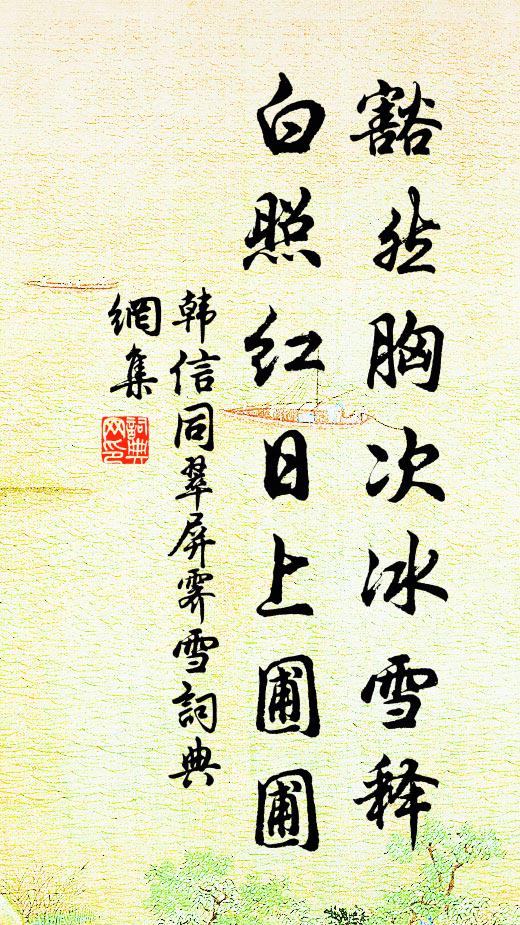 豁然胸次冰雪释
白照红日上圃圃
韩信同翠屏霁雪詞典
網集
詞典网印